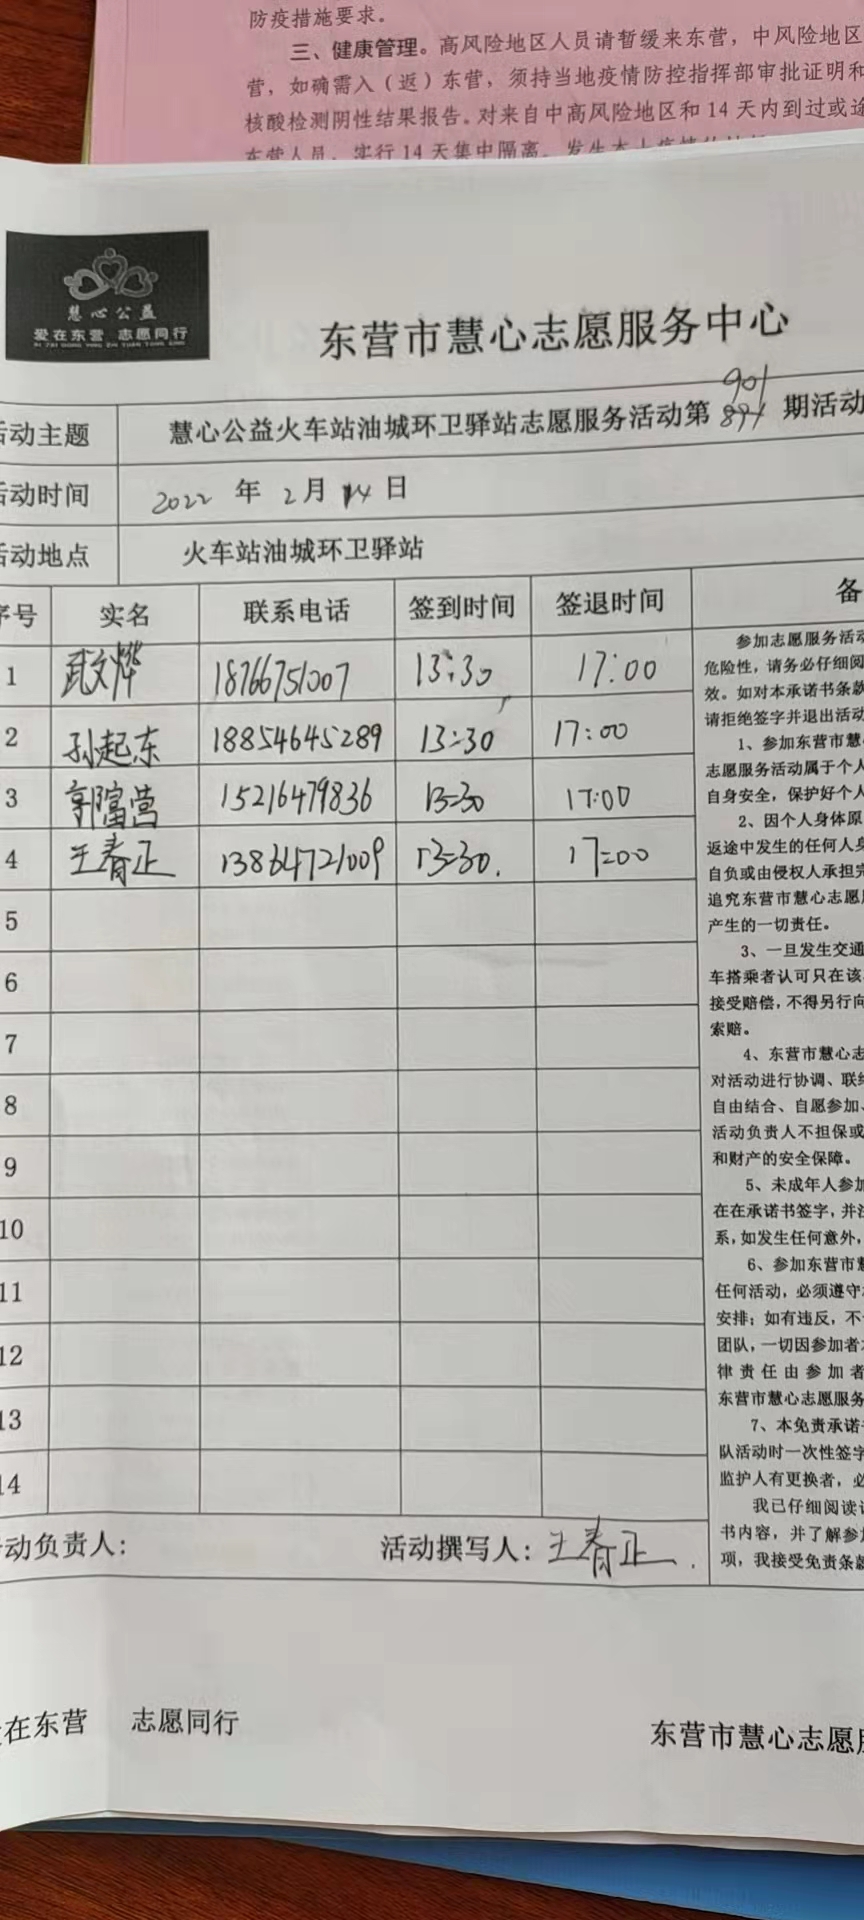 防疫措施要求。
三、健康管理。高风险地区人员请暂缓来东营，中风险地区
营，如确需入（返）东营，须持当地疫情防控指挥部审批证明和
核酸检测阴性结果报告。对来自中高风险地区和14天内到过或途
东营人员，实行14天集中隔离。发生本土疫情的
慧心公益
爱在东营 志愿同行
东营市慧心志愿服务中心
901
活动主题 慧心公益火车站油城环卫驿站志愿服务活动第 期活动
活动时间 2022 年 2月 14 日
活动地点 火车站油城环卫驿站
序号 实名 联系电话 签到时间 签退时间 备
1 武文烨 18766751007 13:30 17:00
2 孙起东 18854645289 13:30 17:00
3 郭富营 15216479836 13:30 17:00
4 王春正 13864721009 13:30. 17:00
5
6
7
8
9
10
11
12
13
14
参加志愿服务活动
危险性，请务必仔细阅
效。如对本承诺书条款
请拒绝签字并退出活动
1、参加东营市慧
志愿服务活动属于个人
自身安全，保护好个人
2、因个人身体原
返途中发生的任何人身
自负或由侵权人承担完
追究东营市慧心志愿
产生的一切责任。
3、一旦发生交通
车搭乘者认可只在该
接受赔偿，不得另行向
索赔。
4、东营市慧心志
对活动进行协调、联络
自由结合、自愿参加、
活动负责人不担保或
和财产的安全保障。
5、未成年人参加
在在承诺书签字，并注
系，如发生任何意外，
6、参加东营市慧
任何活动，必须遵守
安排；如有违反，不
团队，一切因参加者
律责任由参加者
东营市慧心志愿服务
7、本免责承诺书
队活动时一次性签字
监护人有更换者，必
我已仔细阅读
书内容，并了解参加
项，我接受免责条款
活动负责人： 活动撰写人：王春正.
爱在东营 志愿同行 东营市慧心志愿服